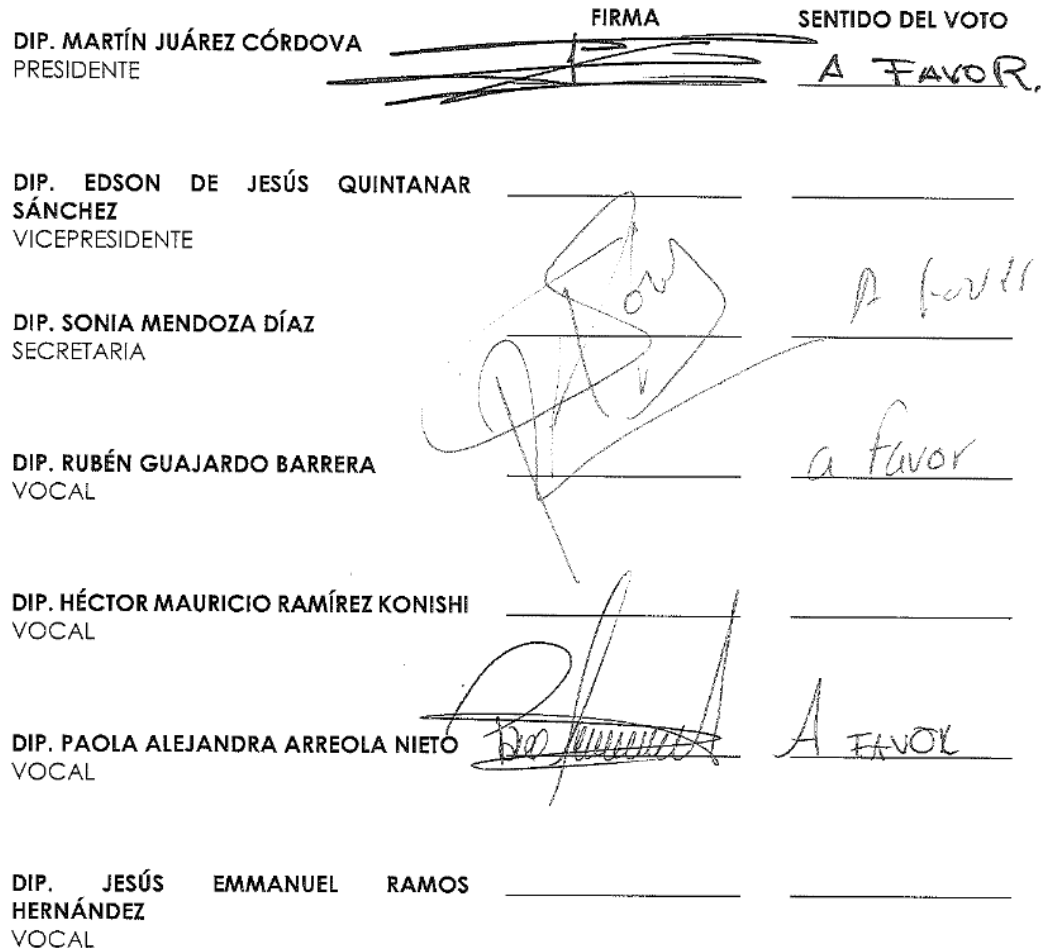 FIRMA SENTIDO DEL VOTO
DIP. MARTÍN JUÁREZ CÓRDOVA
PRESIDENTE A FAVOR.
DIP. EDSON DE JESÚS QUINTANAR
SÁNCHEZ
VICEPRESIDENTE
DIP. SONIA MENDOZA DÍAZ A favor
SECRETARIA
DIP. RUBÉN GUAJARDO BARRERA a favor
VOCAL
DIP. HÉCTOR MAURICIO RAMÍREZ KONISHI
VOCAL
DIP. PAOLA ALEJANDRA ARREOLA NIETO A FAVOR
VOCAL
DIP. JESÚS EMMANUEL RAMOS
HERNÁNDEZ
VOCAL